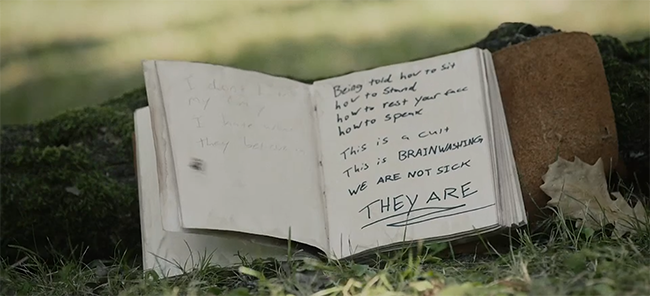 I don't
my body
I hate what
they
Being told how to sit
how to stand
how to rest your face
how to speak
This is a cult
This is BRAINWASHING
WE ARE NOT SICK
THEY ARE